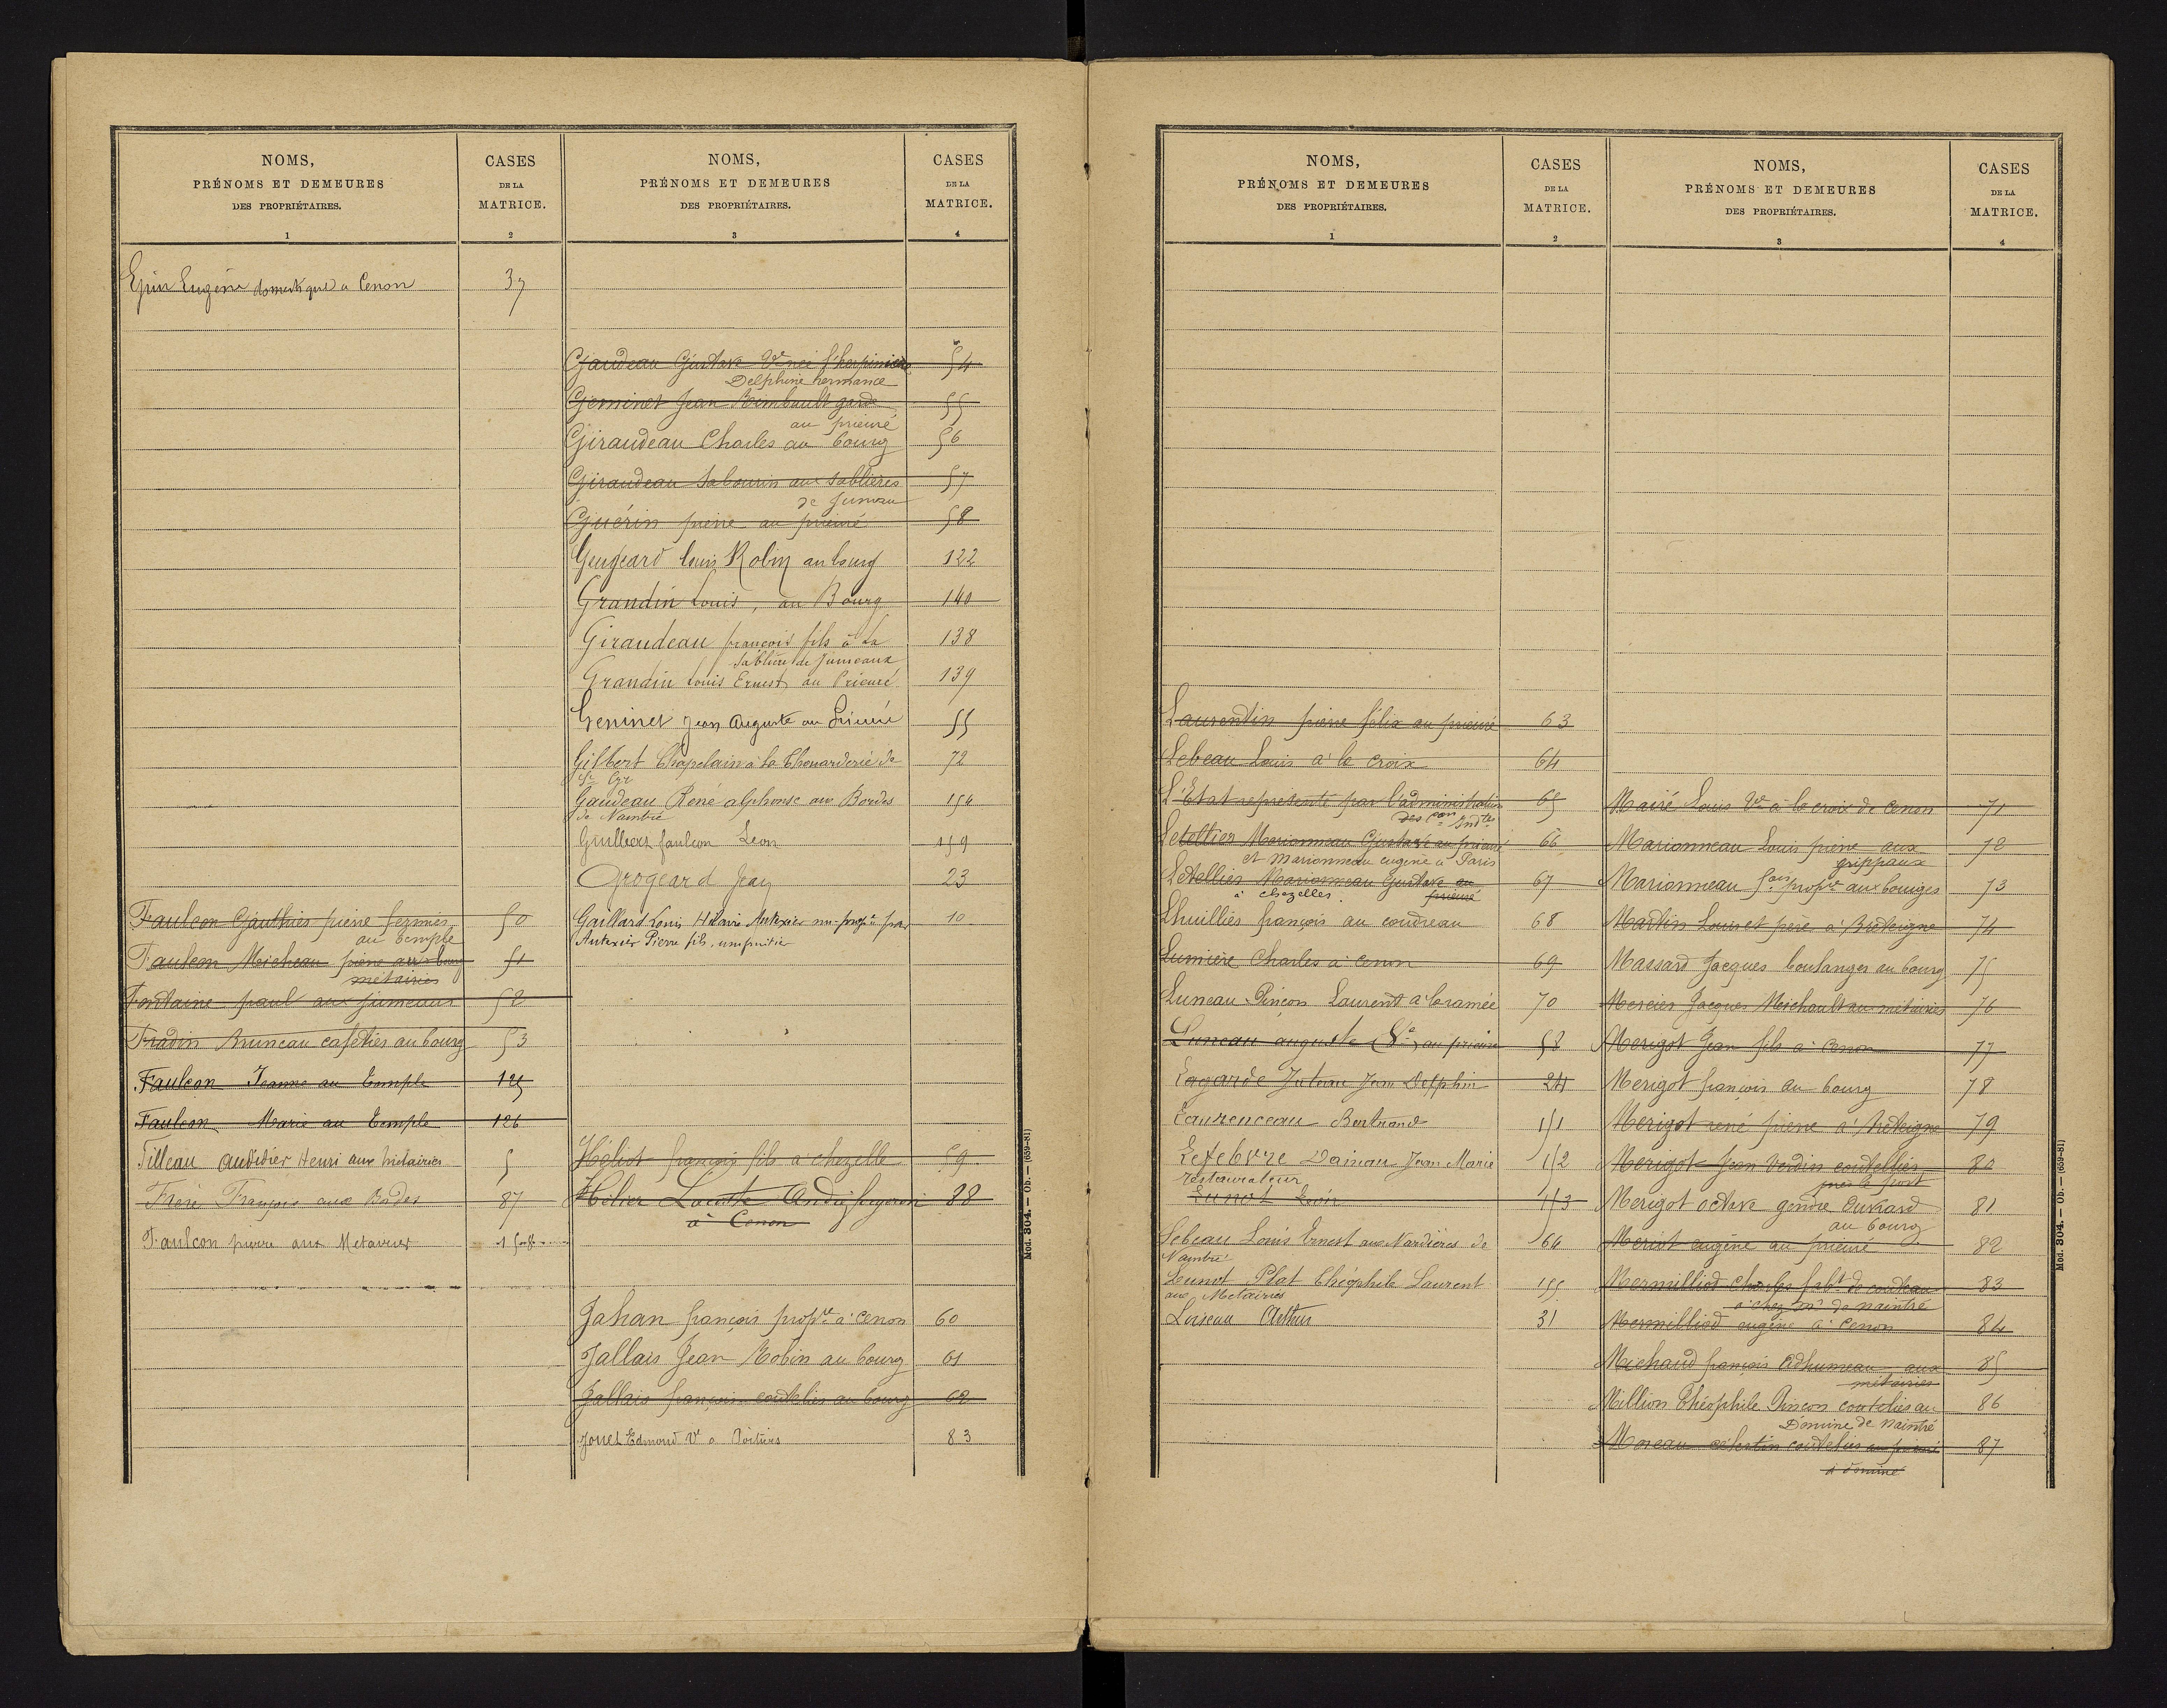 NOMS,
PRÉNOMS ET DEMEURES
DES PROPRIÉTAIRES.
1
CASES
DE LA
MATRICE.
2
Eugène domestique a Cenon 37
Faulcon Gauthier pierre fermier 50
au temple
Faulcon Micheau pierre aux bourg 51
métairies
Fontaine paul aux jumeaux 52
Fradin Bruneau cafetier au bourg 53
Faulcon Jeanne au Temple 125
Faulcon Marie au Temple 126
Filleau Audidier Henri aux métairies 5
François aux Bordes 87
Faulcon pierre aux Métairies 158
NOMS,
PRÉNOMS ET DEMEURES
DES PROPRIÉTAIRES.
3
CASES
DE LA
MATRICE.
4
Gaudeau Gustave Vve née 54
Delphine hermance
Geminet Jean Rimbault garde 55
au prieuré
Giraudeau Charles au bourg 56
Giraudeau Sabourin aux Sablières 57
de Jumeau
Guérin pierre au prieuré 58
Gengeard louis Robin au bourg 122
Grandin Louis, au Bourg 140
Giraudeau françois fils à la 138
Sablière de Jumeaux
Grandin Louis Ernest au Prieuré 139
Geninet Jean Auguste au Prieuré 55
Gilbert Chapelain à la Chenarderie de 72
St Cyr
Gaudeau René alphonse aux Bordes 154
de Naintré
Guilbert faulcon Leon 159
Grogeard Jean 23
Gaillard Louis Hilaire Autexier nu-propre par 10
Autexier Pierre fils, usufruitier
Héliot françois fils à chezelle 59
Hélier Lacoste André forgeron 88
à Cenon
Jahan françois propre à Cenon 60
Jallais Jean Robin au bourg 61
Jallais françois coutelier au bourg 62
Jouet Edmond Vt a Poitiers 83
Mod. 304. — Ob. — (659-81)
NOMS,
PRÉNOMS ET DEMEURES
DES PROPRIÉTAIRES.
1
CASES
DE LA
MATRICE.
2
Laurentin pierre félix au prieuré 63
Lebeau Louis à la croix 64
L'Etat représenté par l'administration 65
des con Indtes
Letellier Marionneau Gustave au prieuré 66
et Marionneau eugène à Paris
Letellier Marionneau Gustave au 67
à chezelles. prieuré
Lhuillier françois au coudreau 68
Lumière Charles à Cenon 69
Luneau Pinçon Laurent à la ramée 70
Luneau auguste au prieuré 58
Lagarde Juteau Jean Delphin 24
Laurenceau Bertrand 151
Lefebvre Dainau Jean Marie 152
restaurateur
153
Lebeau Louis Ernest aux Nardières de 64
Naintré
Lunot Plat Théophile Laurent 155
aux Metairies
Loiseau Arthur 31
NOMS,
PRÉNOMS ET DEMEURES
DES PROPRIÉTAIRES.
3
CASES
DE LA
MATRICE.
4
Mairé Louis Ve à la croix de Cenon 71
Marionneau Louis pierre aux 72
grippaux
Marionneau fois propre aux bouiges 73
Martin Louis et père à Brétigne 74
Massard Jacques boulanger au bourg 75
Mercier Jacques Michault au métairies 76
Merigot Jean fils à Cenon 77
Merigot françois au bourg 78
Merigot rené pierre à Brétigne 79
Merigot Jean Verdin coutellier 80
près le port
Merigot octave gendre Ouvrard 81
au bourg
Meriot eugène au prieuré 82
Mermilliod Charles fabt de couteaux 83
à de naintré
Mermilliod eugène à Cenon 84
Michaud françois Adhumeau aux 85
métairies
Million Théophile Pinçon coutelier au 86
Domine de Naintré
Moreau célestin coutelier au prieuré 87
à domine
Mod. 304. — Ob. — (659-81)